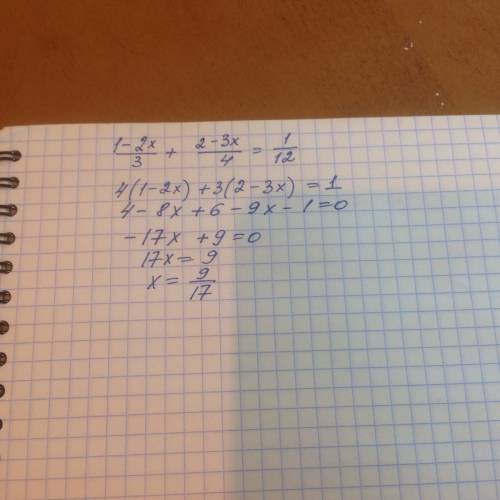 (1-2x)/3 + (2-3x)/4 = 1/12
4(1-2x) + 3(2-3x) = 1
4 - 8x + 6 - 9x - 1 = 0
-17x + 9 = 0
17x = 9
x = 9/17